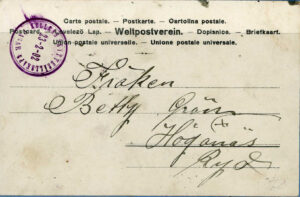 Carte postale. - Postkarte. - Cartolina postale.
Postcard. Levelező Lap. - Weltpostverein. - Dopisnice. - Briefkaart.
Union postale universelle. - Unione postale universale.
Fröken
Betty Grön
Höganäs
Ryd